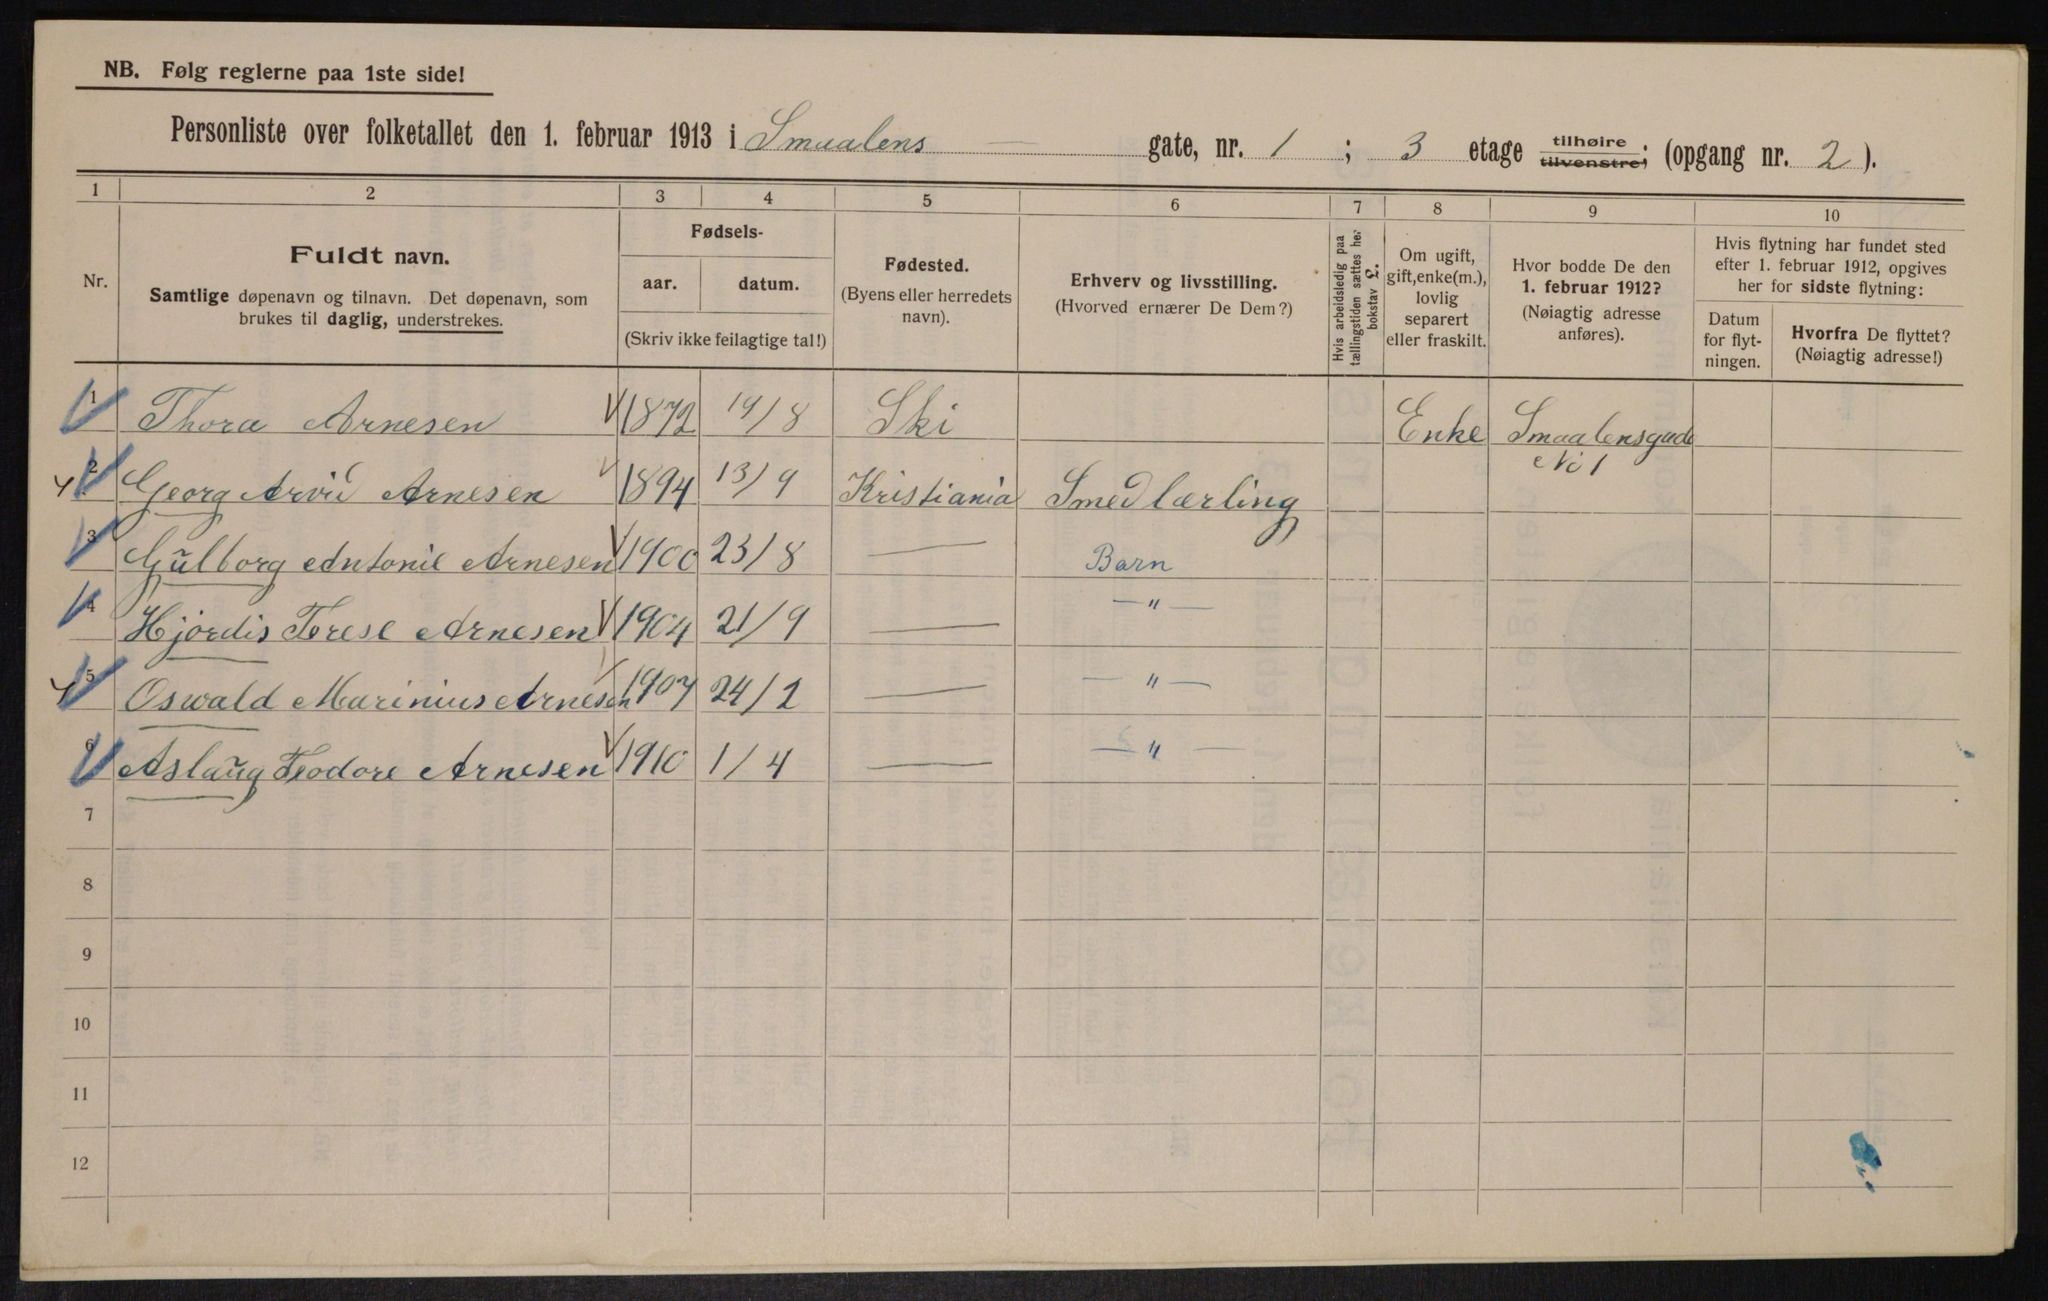 NB. Følg reglerne paa 1ste side!
Personliste over folketallet den 1. februar 1913 i Smaalens gate, nr. 1 ; 3 etage tilhøire tilvenstre; (opgang nr. 2).
1 2 3 4 5 6 7 8 9 10
Nr.
Fuldt navn.
Samtlige døpenavn og tilnavn. Det døpenavn, som
brukes til daglig, understrekes.
Fødsels-
aar. datum.
(Skriv ikke feilagtige tal!)
Fødested.
(Byens eller herredets
navn).
Erhverv og livsstilling.
(Hvorved ernærer De Dem?)
Hvis arbeidsledig paa
tællingstiden sættes her
bokstav L.
Om ugift,
gift, enke(m.),
lovlig
separert
eller fraskilt.
Hvor bodde De den
1. februar 1912?
(Nøiagtig adresse
anføres).
Hvis flytning har fundet sted
efter 1. februar 1912, opgives
her for sidste flytning:
Datum
for flyt-
ningen.
Hvorfra De flyttet?
(Nøiagtig adresse!)
1 Thora Arnesen 1872 19/8 Ski Enke Smaalensgade
No 1
2 Georg Arvid Arnesen 1894 13/9 Kristiania Smedlærling
3 Gulborg Antonie Arnesen 1900 23/8 — Barn
4 Hjordis Terese Arnesen 1904 21/9 — — " —
5 Oswald Marinius Arnesen 1907 24/2 — — " —
6 Aslaug Teodore Arnesen 1910 1/4 — — " —
7
8
9
10
11
12